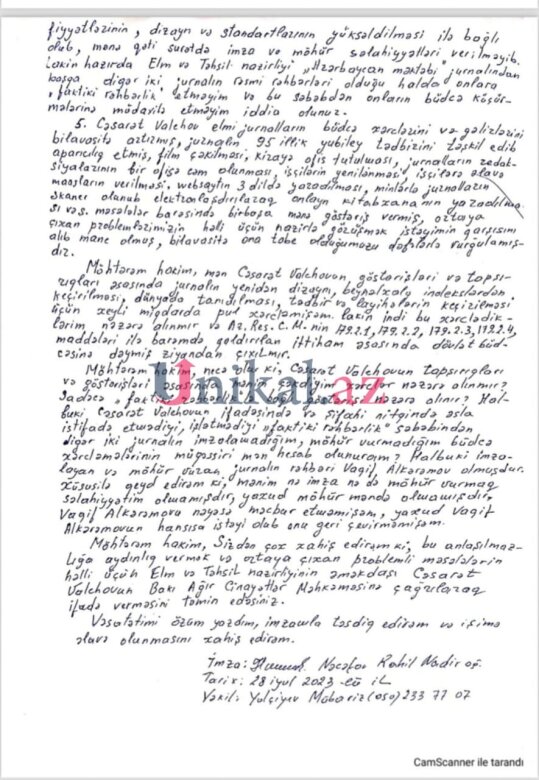 fiyyətlərinin, dizayn və standartlarının yüksəldilməsi ilə bağlı
olub, mənə qəti surətdə imza və möhür səlahiyyətləri verilməyib.
Lakin hazırda Elm və Təhsil nazirliyi "Azərbaycan məktəbi" jurnalından
başqa digər iki jurnalın rəsmi rəhbərləri olduğu halda onlara
"faktiki rəhbərlik" etməyim və bu səbəbdən onların büdcə küsür-
mələrinə müdaxilə etməyim iddia olunur.
5. Cəsarət Valehov elmi jurnalların büdcə xərclərini və gəlirlərini
bilavasitə artırmış, jurnalın 95 illik yubiley tədbirini təşkil edib
aparıcılıq etmiş, film çəkilməsi, kirayə ofis tutulması, jurnalların redak-
siyalarının bir ofisə cəm olunması, işçilərin yenilənməsi, işçilərə əlavə
maaşların verilməsi, websaytın 3 dildə yaradılması, minlərlə jurnalların
skaner olunub elektronlaşdırılaraq onlayn kitabxananın yaradılma-
sı və s. məsələlər barəsində birbaşa mənə göstəriş vermiş, ortaya
çıxan problemlərimizin həlli üçün nazirlə görüşmək istəyimin qarşısını
alıb mane olmuş, bilavasitə ona tabe olduğumuzu dəfələrlə vurğulamış-
dır.
Möhtərəm hakim, mən Cəsarət Valehovun, göstərişləri və tapşı-
rıqları əsasında jurnalın yenidən dizaynı, beynəlxalq indekslərdən
keçirilməsi, dünyada tanıdılması, tədbir və layihələrin keçirilməsi
üçün xeyli miqdarda pul xərcləmişəm. Lakin indi bu xərclədik-
lərim nəzərə alınmır və Az.Res.C.M.-nin 179.2.1, 179.2.2, 179.2.3, 179.2.4,
maddələri ilə barəmdə qaldırılan ittiham əsasında dövlət büd-
cəsinə dəymiş ziyandan çıxılmır.
Möhtərəm hakim, necə olur ki, Cəsarət Valehovun tapşırıqları
və göstərişləri əsasında mənim çəkdiyim xərclər nəzərə alınmır?
Sadəcə "faktiki rəhbərlik" nəzərə alınır? Hal-
buki Cəsarət Valehovun ifadəsində və şifahi nitqində əsla
istifadə etmədiyi, işlətmədiyi "faktiki rəhbərlik" səbəbindən
digər iki jurnalın imzalamadığım, möhür vurmadığım büdcə
xərcləmələrinin müqəssiri mən hesab olunuram? Halbuki imza-
layan və möhür vuran jurnalın rəhbəri Vaqif Alkərəmov olmuşdur.
Xüsusilə qeyd edirəm ki, mənim nə imza nə də möhür vurmaq
səlahiyyətim olmamışdır, yaxud möhür məndə olmamışdır,
Vaqif Alkərəmovu nəyəsə məcbur etməmişəm, yaxud Vaqif
Alkərəmovun hansısa istəyi olub onu geri çevirməmişəm.
Möhtərəm hakim, Sizdən çox xahiş edirəm ki, bu anlaşılmaz-
lığa aydınlıq vermək və ortaya çıxan problemli məsələlərin
həlli üçün Elm və Təhsil nazirliyinin əməkdaşı Cəsarət
Valehovun Bakı Ağır Cinayətlər Məhkəməsinə çağrılaraq
ifadə verməsini təmin edəsiniz.
Vəsatətimi özüm yazdım, imzamla təsdiq edirəm və işimə
əlavə olunmasını xahiş edirəm.
İmza: Nəcəfov Rahil Nadir oğ.
Tarix: 28 iyul 2023-cü il
Vəkil: Yalçıyev Mübariz (050) 233 77 07
Unikal.az
CamScanner ile tarandı